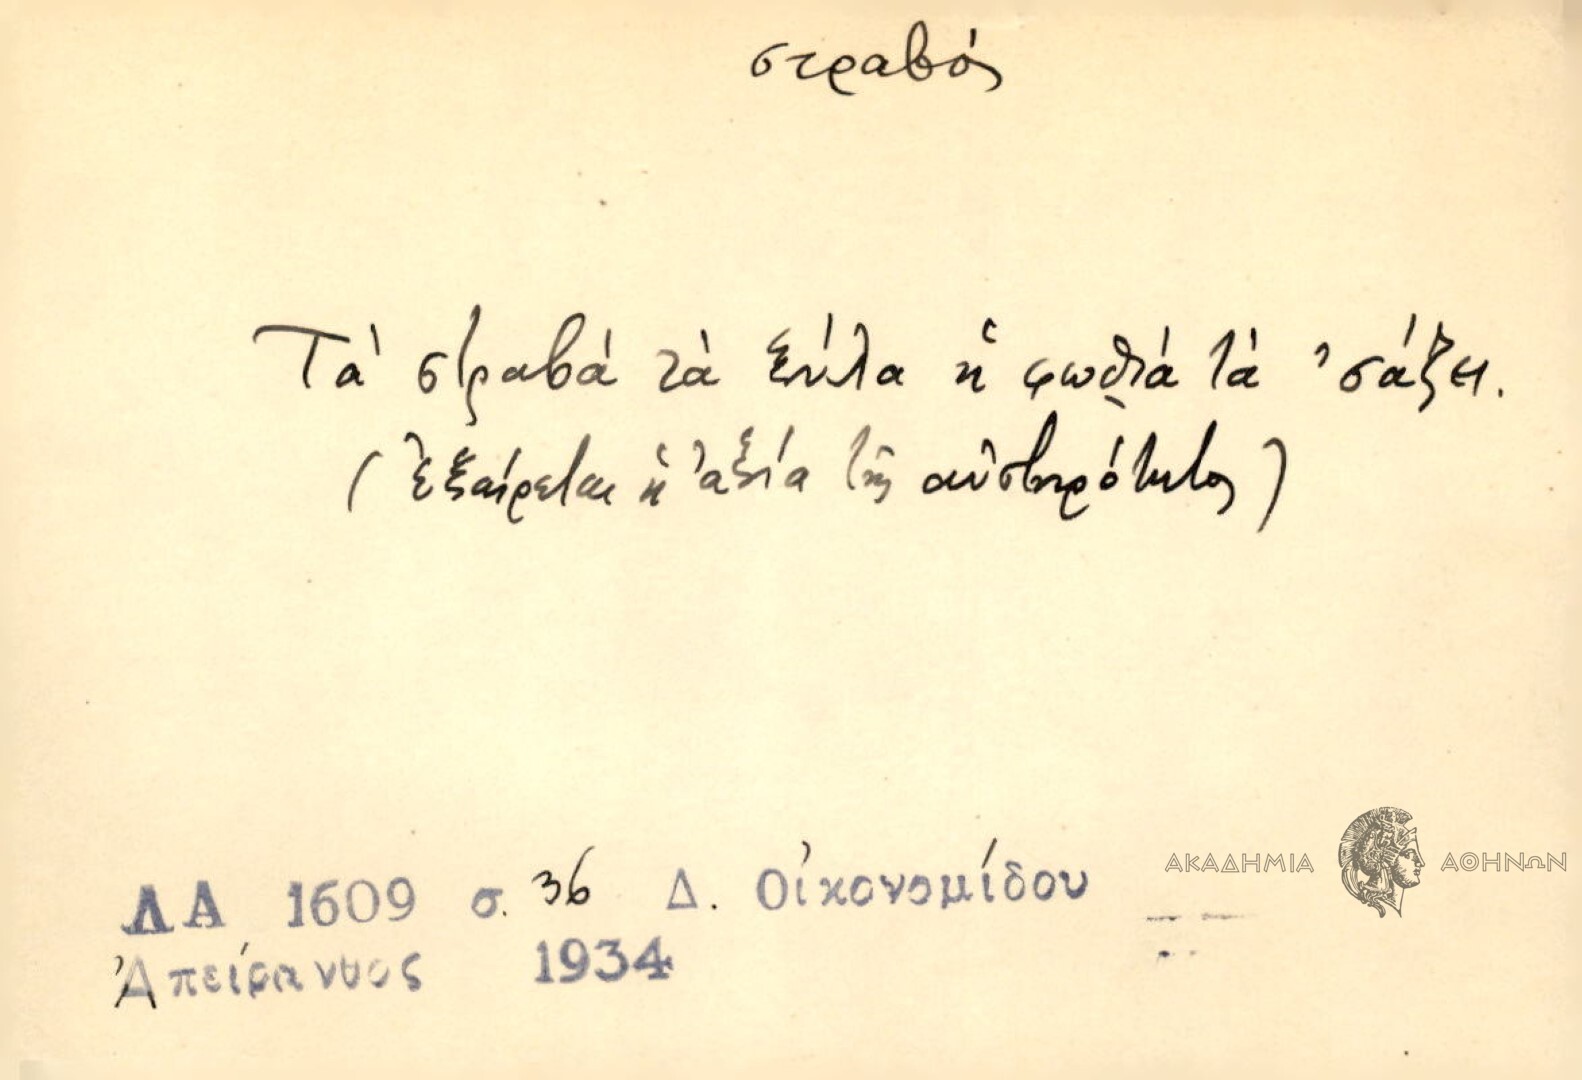 στραβός
Τὰ στραβὰ τὰ ξύλα ἡ φωθιά τὰ 'σάζει.
(ἐξαίρεται ἡ ἀξία τῆς αὐστηρότητος)
ΑΚΑΔΗΜΙΑ ΑΘΗΝΩΝ
ΛΑ 1609 σ. 36 Δ. Οἰκονομίδου
Ἀπείρανθος 1934